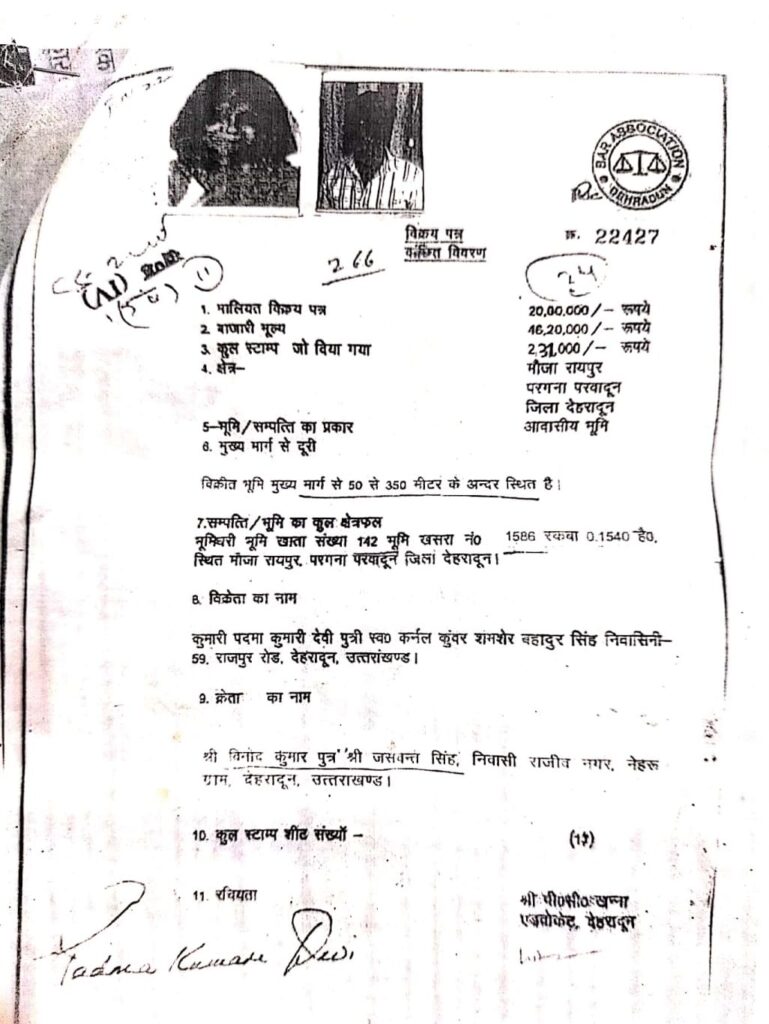 BAR ASSOCIATION
DEHRADUN
विक्रय पत्र
क्र. 22427
वांछित विवरण
266
24
1. मालियत विक्रय पत्र 20,00,000/– रूपये
2. बाजारी मूल्य 46,20,000/– रूपये
3. कुल स्टाम्प जो दिया गया 2,31,000/– रूपये
4. क्षेत्र– मौजा रायपुर
परगना परवादून
जिला देहरादून
5–भूमि/सम्पत्ति का प्रकार आवासीय भूमि
6. मुख्य मार्ग से दूरी
विक्रीत भूमि मुख्य मार्ग से 50 से 350 मीटर के अन्दर स्थित है।
7.सम्पत्ति/भूमि का कुल क्षेत्रफल
भूमिधरी भूमि खाता संख्या 142 भूमि खसरा नं0 1586 रकबा 0.1540 है0,
स्थित मौजा रायपुर, परगना परवादून जिला देहरादून।
8. विक्रेता का नाम
कुमारी पदमा कुमारी देवी पुत्री स्व0 कर्नल कुंवर शमशेर बहादुर सिंह निवासिनी–
59, राजपुर रोड, देहरादून, उत्तरांखण्ड।
9. क्रेता का नाम
श्री विनोद कुमार पुत्र श्री जसवन्त सिंह, निवासी राजीव नगर, नेहरू
ग्राम, देहरादून, उत्तराखण्ड।
10. कुल स्टाम्प शीट संख्याँ –
11. रचियता श्री पी0सी0 खन्ना
एडवोकेट, देहरादून
Padma Kumari Devi